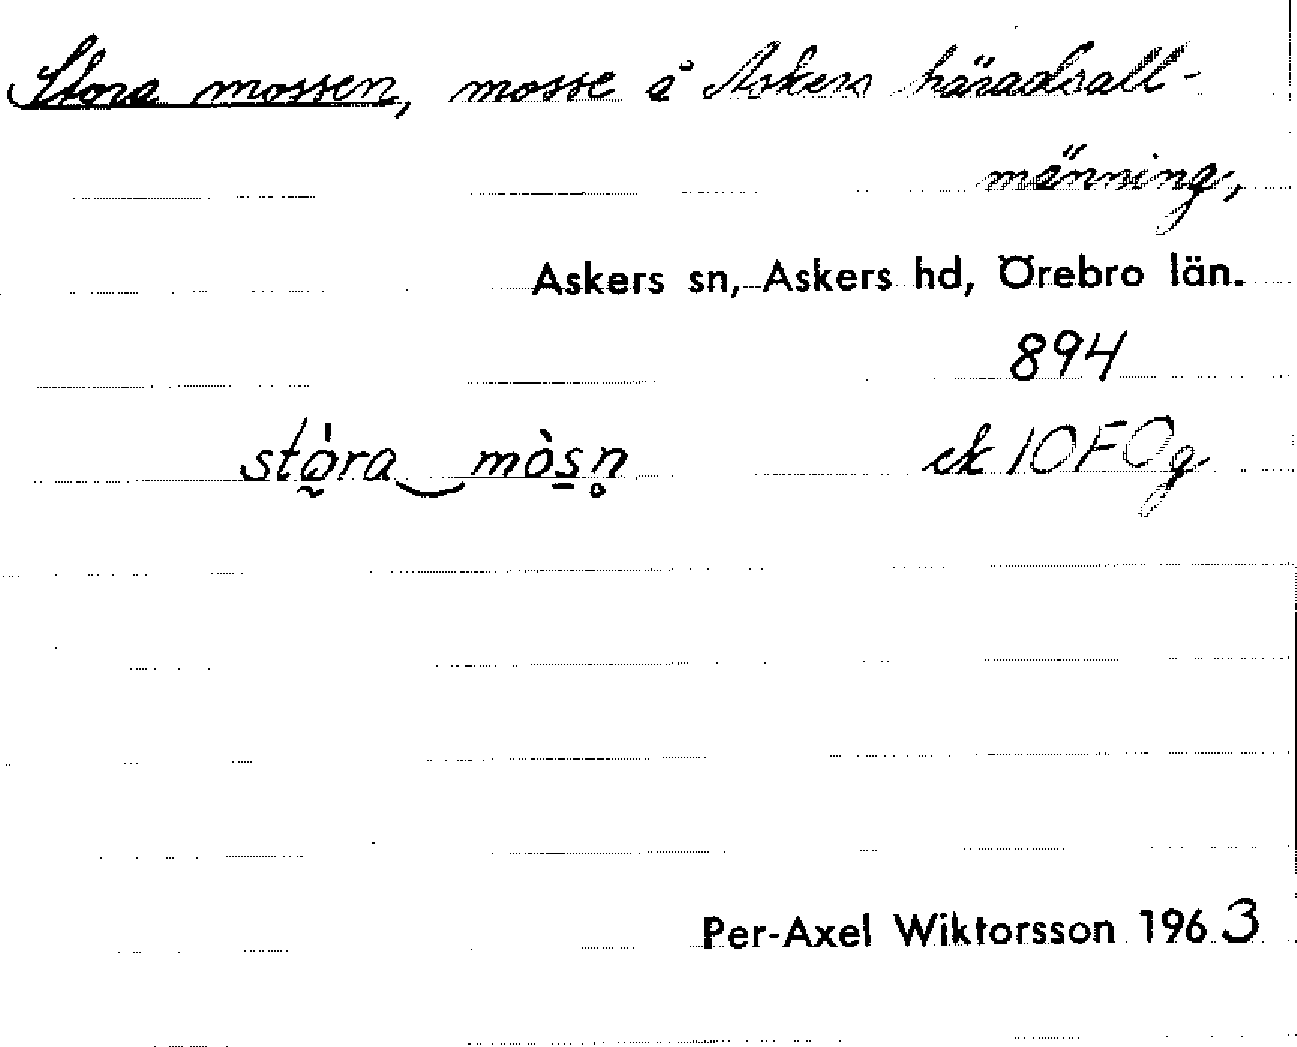 Stora mossen, mosse å Askers häradsall-
männing,
Askers sn, Askers hd, Örebro län.
894
stò̰ra‿mòs̠n̥ ek 10F0g
Per-Axel Wiktorsson 1963